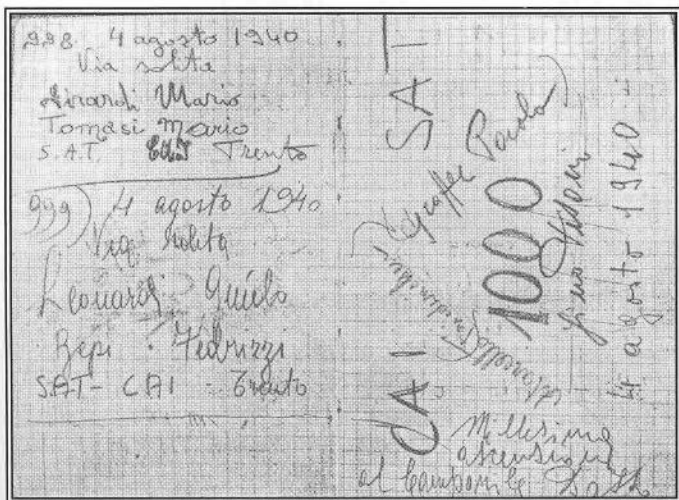 998. 4 agosto 1940
Via solita
Girardi Mario
Tomasi Mario
S.A.T. Trento
999) 4 agosto 1940
Via solita
Leonardi Guido
Bepi Fedrizzi
SAT - CAI - Trento
CAI SAT
Graffer Paolo
1000
Gino Pisoni
4 agosto 1940
Millesima
ascensione
al Campanile Basso